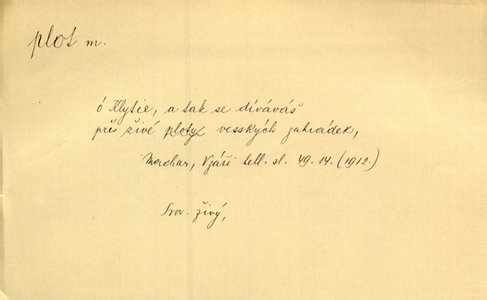 plot m.
ó Klytie, a tak se díváváš
přes živé ploty vesských zahrádek,
Machar, V záři hell. sl. 49. 14. (1912.)
Srov. živý,